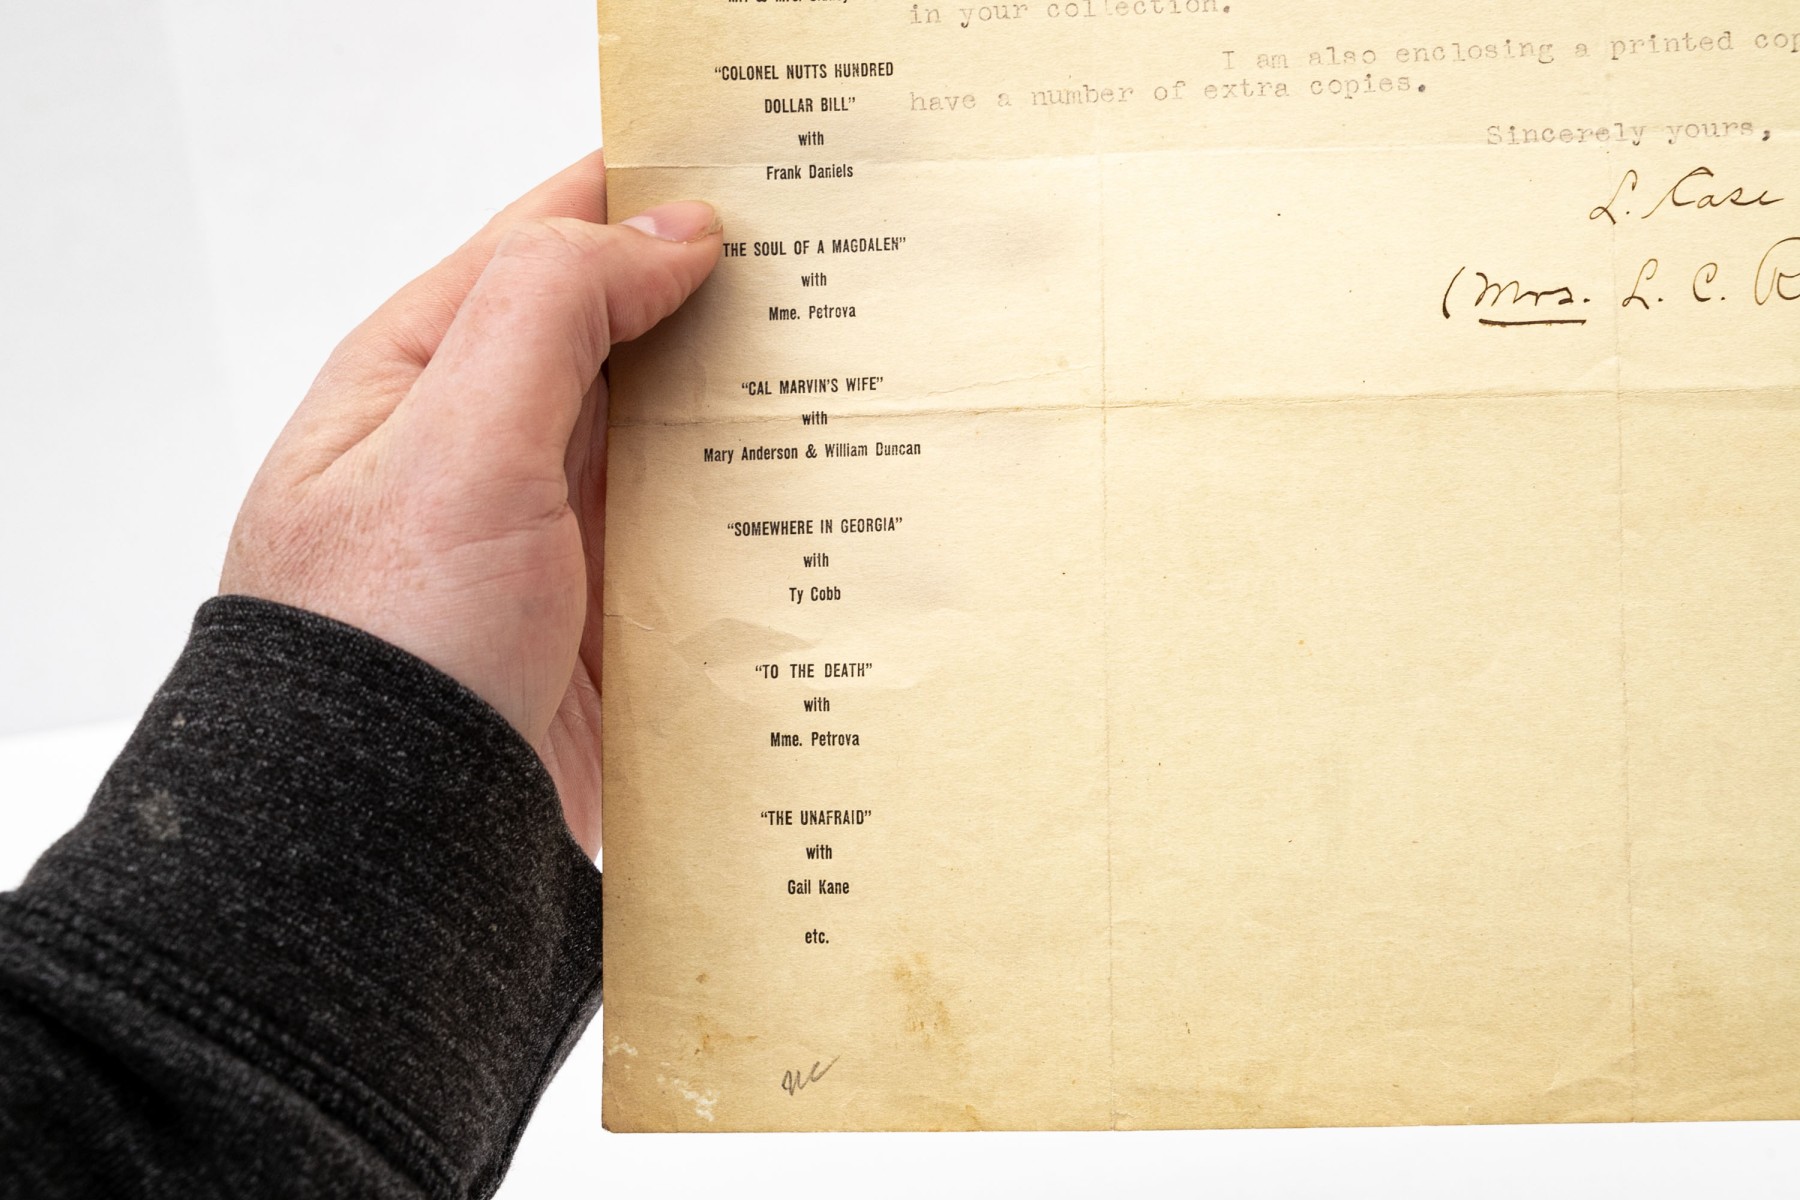 in your collection.
I am also enclosing a printed
have a number of extra copies.
Sincerely yours,
L. Case
(Mrs. L. C.
"COLONEL NUTTS HUNDRED
DOLLAR BILL"
with
Frank Daniels
THE SOUL OF A MAGDALEN"
with
Mme. Petrova
"CAL MARVIN'S WIFE"
with
Mary Anderson & William Duncan
"SOMEWHERE IN GEORGIA"
with
Ty Cobb
"TO THE DEATH"
with
Mme. Petrova
"THE UNAFRAID"
with
Gail Kane
etc.